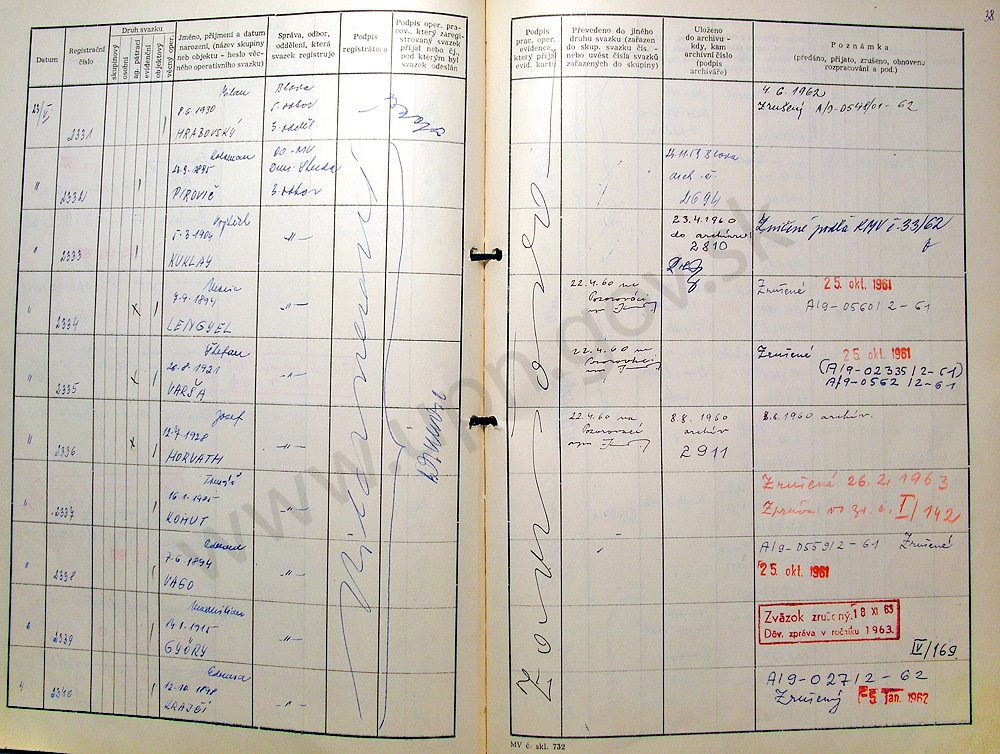 38
Datum
Registrační číslo
Druh svazku
skupinový
osobní
ag. pátrací
evidenční
objektový
věcný oper.
Jméno, příjmení a datum
narození, (název skupiny
neb objektu - heslo věc-
ného operativního svazku)
Správa, odbor,
oddělení, která
svazek registruje
Podpis
registrátora
Podpis oper. pra-
cov. který zaregi-
strovaný svazek
přijal nebo čj.
pod kterým byl
svazek odeslán
Podpis
prac. oper.
evidence,
který přijal
evid. kartu
Převedeno do jiného
druhu svazku (zařazen
do skup. svazku čís. -
nebo uvést čísla svazků
zařazených do skupiny)
Uloženo
do archivu -
kdy, kam
archivní číslo
(podpis
archiváře)
Poznámka
(předáno, přijato, zrušeno, obnoveno
rozpracování a pod.)
23/V
2331
Milan
8.6.1930
HRABOVSKÝ
Blava
3. oddel.
4.6.1962
Zrušený A/9-0548/01-62
"
2332
Koloman
PIROVIČ
OO-MV
Dun. Streda
3. odbor
24.11.59 Blava
arch. č.
4694
"
2333
Vojtech
5.3.1904
KURLAY
-"-
23.4.1960
do archívu
2810
Zničené podľa RMV č. 33/62
"
2334
7.9.1894
LENGYEL
-"-
22.4.60 na
Pozorovací
Zrušené
25. okt. 1961
A/9-0560/2-61
"
2335
Štefan
20.8.1921
VARŠA
-"-
22.4.60 na
Pozorovací
Zrušené
25. okt. 1961
(A/9-02335/2-61)
A/9-0562/2-61
"
2336
Jozef
12.7.1928
HORVATH
-"-
22.4.60 na
Pozorovací
8.8.1960
archív
2911
8.8.1960 archív.
"
2337
16.1.1905
KOHUT
-"-
Zrušené 26.2.1963
Zpráva vo zv. č. I/142
"
2338
Edmund
7.6.1894
VAGO
-"-
A/9-0559/2-61 Zrušené
25. okt. 1961
"
2339
Maximilian
14.1.1915
GYÖRY
-"-
Zväzok zrušený. 18 XI 63
Dôv. zpráva v ročníku 1963.
IV/169
"
2340
12.10.1898
-"-
A/9-027/2-62
Zrušený
5. Jan. 1962
MV č. skl. 732
www.upn.gov.sk